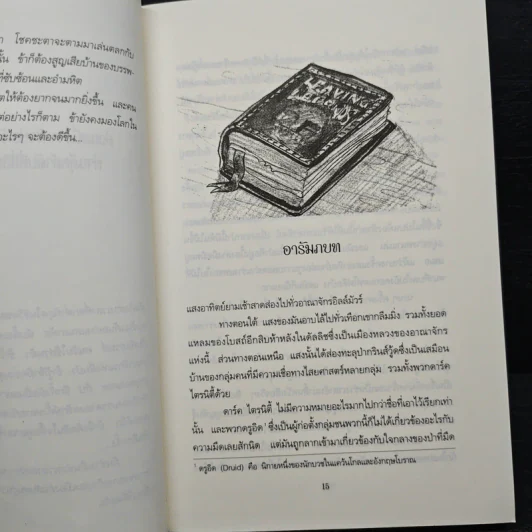 โชคชะตาจะตามมาเล่นตลกกับ
ข้าก็ต้องสูญเสียบ้านของบรรพ-
ที่ซับซ้อนและอำมหิต
ให้ต้องยากจนมากยิ่งขึ้น และคน
อย่างไรก็ตาม ข้ายังคงมองโลกใน
อะไรๆ จะต้องดีขึ้น...
อารัมภบท
แสงอาทิตย์ยามเช้าสาดส่องไปทั่วอาณาจักรอิลล์มัวร์
ทางตอนใต้ แสงของมันอาบไล้ไปทั่วเทือกเขากลิมมิ่ง รวมทั้งยอด
แหลมของโบสถ์อีกสิบห้าหลังในดัลลิชซึ่งเป็นเมืองหลวงของอาณาจักร
แห่งนี้ ส่วนทางตอนเหนือ แสงนั้นได้ส่องทะลุป่ากรีนส์วู้ดซึ่งเป็นเสมือน
บ้านของกลุ่มคนที่มีความเชื่อทางไสยศาสตร์หลายกลุ่ม รวมทั้งพวกดาร์ค
ไตรนิตี้ด้วย
ดาร์ค ไตรนิตี้ ไม่มีความหมายอะไรมากไปกว่าชื่อที่เอาไว้เรียกเท่า
นั้น และพวกดรูอิด¹ ซึ่งเป็นผู้ก่อตั้งกลุ่มชนพวกนี้ก็ไม่ได้เกี่ยวข้องอะไรกับ
ความมืดเลยสักนิด แต่มันถูกลากเข้ามาเกี่ยวข้องกับใจกลางของป่าที่มืด
¹ ดรูอิด (Druid) คือ นิกายหนึ่งของนักบวชในแคว้นโกลและอังกฤษโบราณ
15